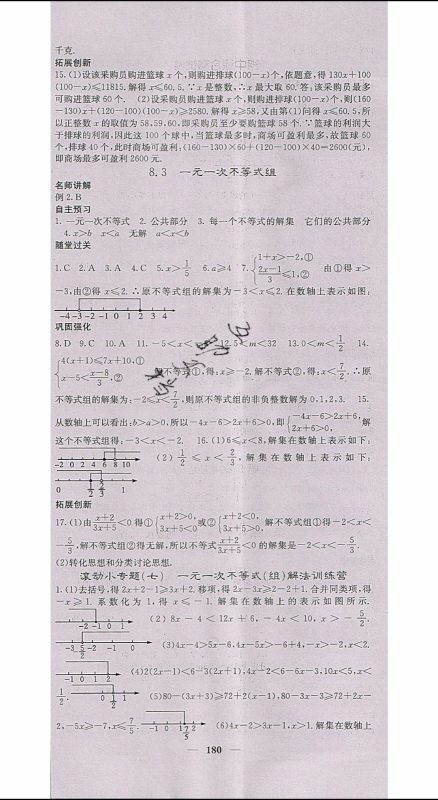 千克.
拓展创新
15.(1)设该采购员购进篮球x个,则购进排球(100-x)个,依题意,得130x+100
(100-x)≤11815.解得x≤60.5.∵x是整数,∴x最大取60.答:该采购员最多
可购进篮球60个. (2)设该采购员购进篮球x个,则购进排球(100-x)个,则(160
-130)x+(120-100)(100-x)≥2580.解得x≥58,又由第(1)问得x≤60.5,所
以正整数x的取值为58,59,60,即采购员至少要购篮球58个.∵篮球的利润大
于排球的利润,因此这100个球中,当篮球最多时,商场可盈利最多,故篮球60
个,排球40个,此时商场可盈利:(160-130)×60+(120-100)×40=2600(元),
即商场最多可盈利2600元.
8.3 一元一次不等式组
名师讲解
例2.B
自主预习
1.一元一次不等式 2.公共部分 3.每一个不等式的解集 它们的公共部分
4.x>b x<a 无解 a<x<b
随堂过关
1.C 2.A 3.A 4.C 5.x>1/5 6.a≥4 7.{1+x>-2,① (2x-1)/3≤1,② 由①得x>
-3,由②得x≤2.∴原不等式组的解集为-3<x≤2.在数轴上表示如图:
-4 -3 -2 -1 0 1 2 3 4 5
巩固强化
8.D 9.C 10.A 11.-5<x< 12.5 m<32 13.0<m<1/2 14.
{4(x+1)≤7x+10,① x-5<(x-8)/3,② 不等式①,得:x≥-2.解不等式②,得:x<7/2.∴原
不等式组的解集为:-2≤x<7/2,则原不等式组的非负整数解为0,1,2,3. 15.
从数轴上可以看出:b>a>0,所以-4x-6>2x+6>0,即{-4x-6>2x+6, 2x+6>0, 解
这个不等式组得:-3<x<-2. 16.(1)6≤x<8,解集在数轴上表示如下:
-2 0 2 4 6 8 10 (2)1/2≤x<2/3,解集在数轴上表示如下:
0 1/2 2/3 1 2
拓展创新
17.(1)由(x+2)/(3x+5)<0得①{x+2>0, 3x+5<0 或②{x+2<0, 3x+5>0, 解不等式组①得-2<x<
-5/3,解不等式组②得无解,所以不等式(x+2)/(3x+5)<0的解集是-2<x<-5/3.
(2)转化思想和分类讨论思想.
滚动小专题(七) 一元一次不等式(组)解法训练营
1.(1)去括号,得2x+2-1≥3x+2.移项,得2x-3x≥2-2+1.合并同类项,得
-x≥1.系数化为1,得x≤-1.解集在数轴上的表示如图所示.
-2 -1 0 1 (2)8x-4<12x+6,-4x<10,x>-5/2.
-3 -5/2 -2 -1 0 (3)4x-4>5x-6,4x-5x>-6+4,-x>-2,x<2.
-1 0 1 2 (4)2(2x-1)<6-3(2x+1),4x-2<6-6x-3,10x<5,x<
1/2. -1 0 1/2 1 (5)80-(3x+3)≥72+2(x-1),80-3x-3≥72+2x-
2,-5x≥-7,x≤7/5. -1 0 1 7/5 2 (6)4x-2>3x-1,x>1.解集在数轴上
180